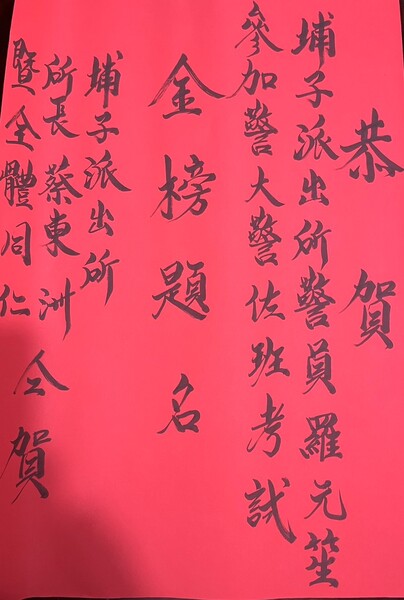 恭賀
埔子派出所警員羅元笙
參加警大警佐班考試
金榜題名
埔子派出所
所長蔡東洲
暨全體同仁
仝賀